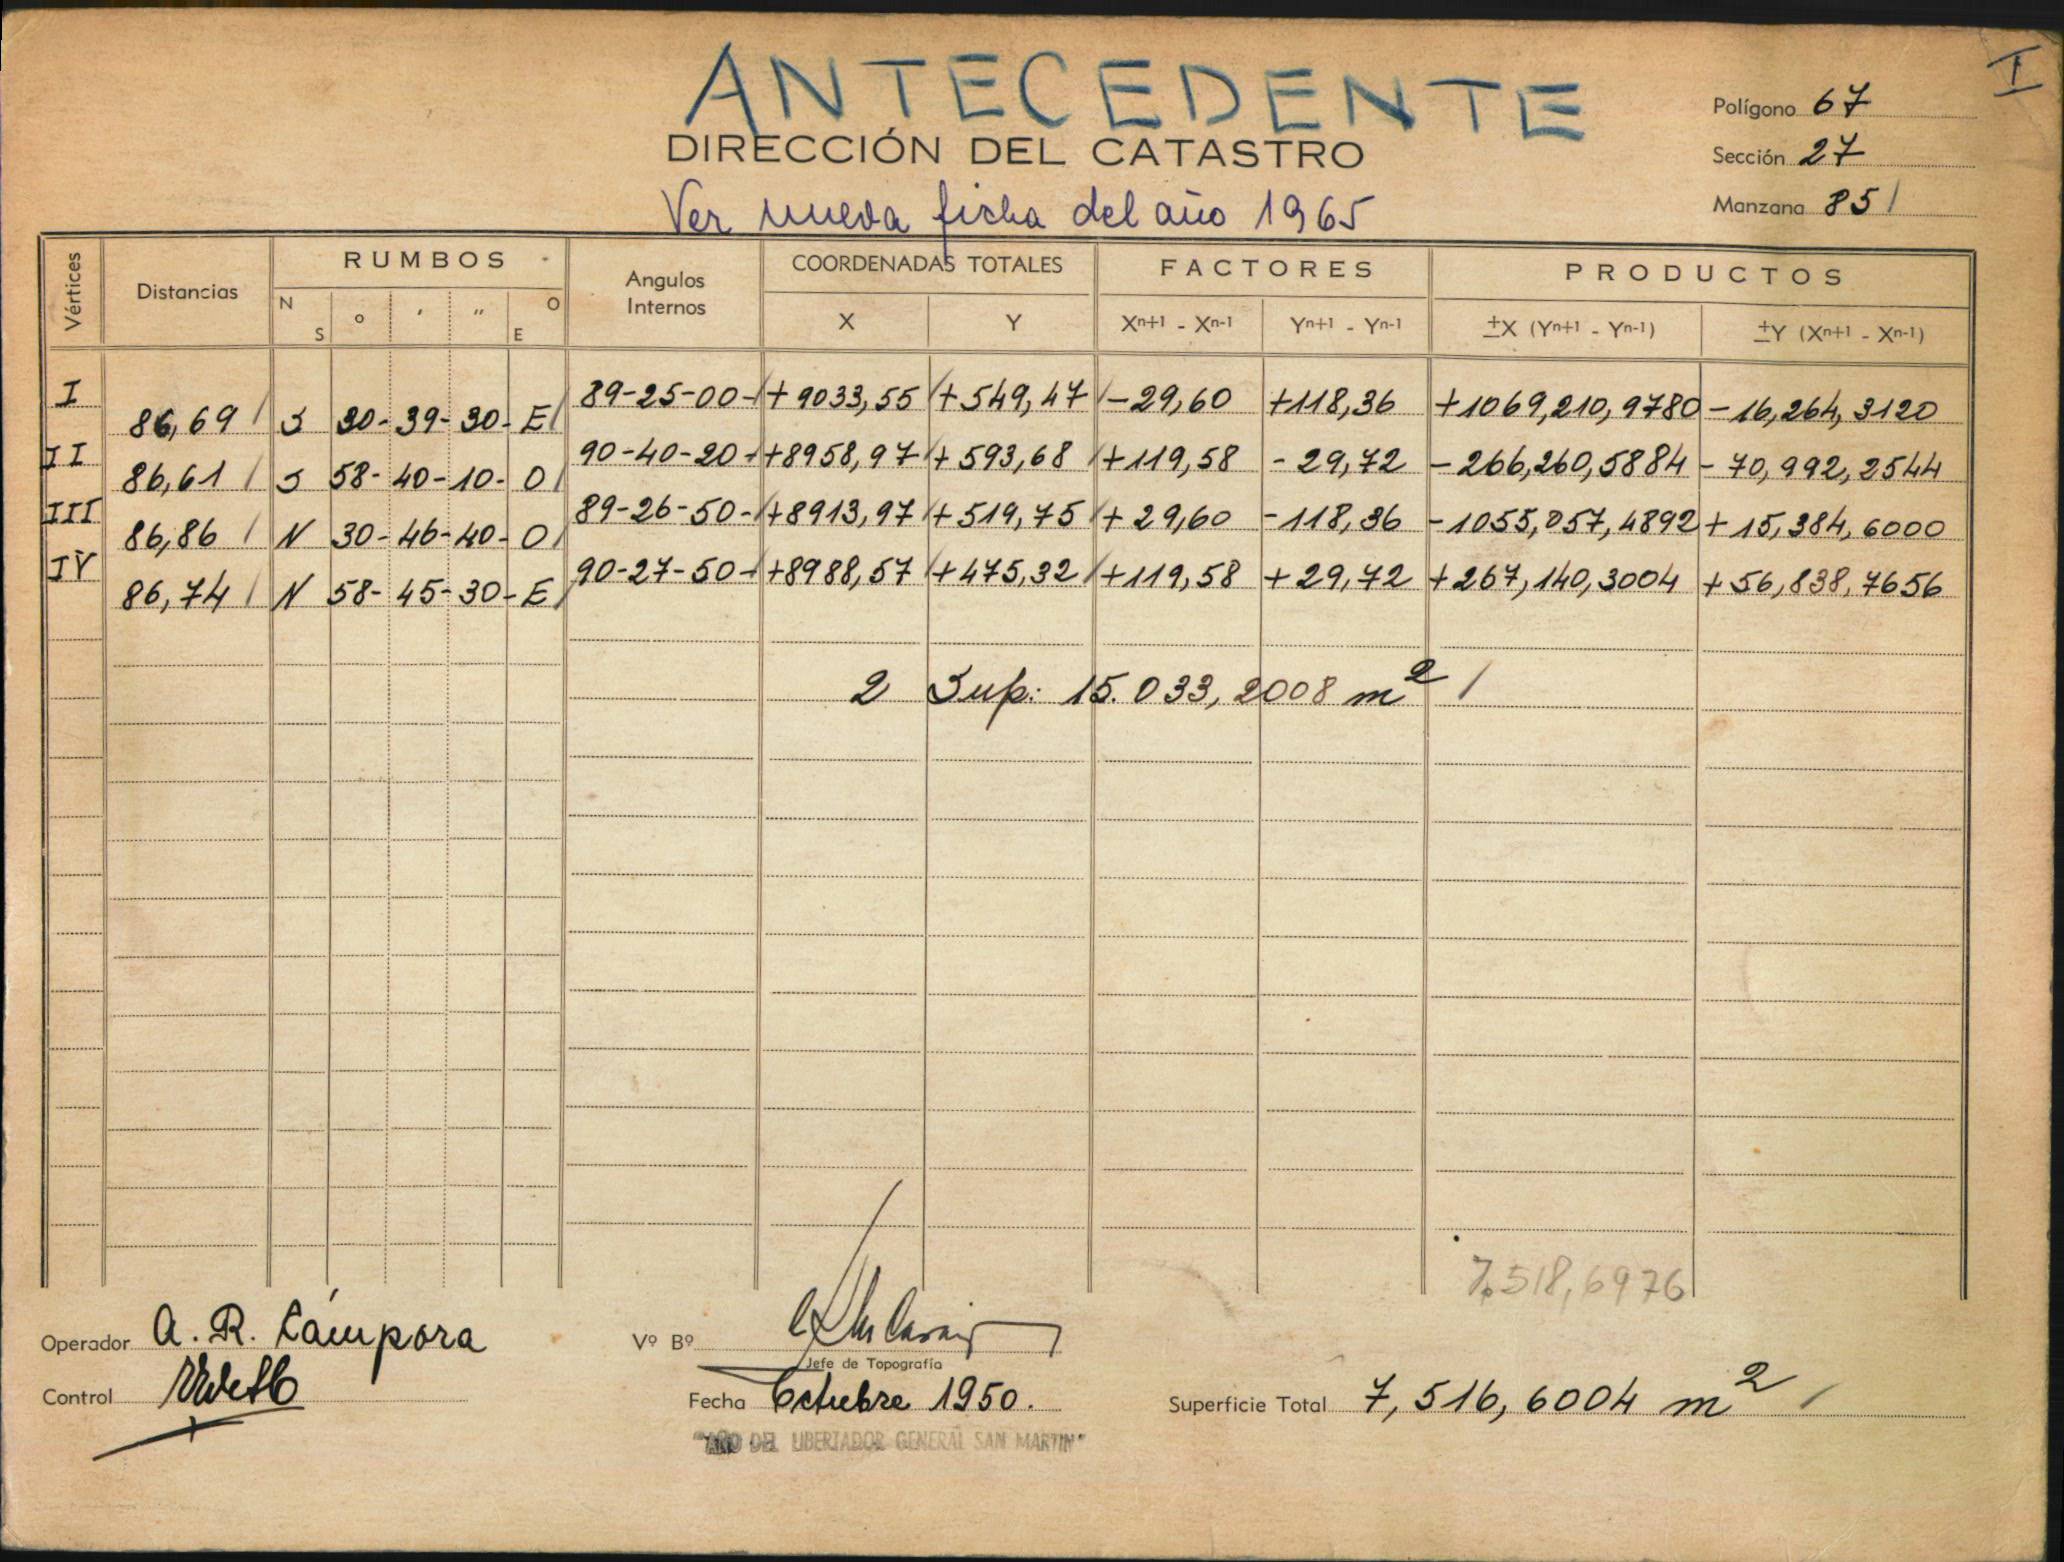 I
ANTECEDENTE
DIRECCIÓN DEL CATASTRO
Ver nueva ficha del año 1965
Polígono 67
Sección 27
Manzana 85
Vértices Distancias RUMBOS Angulos Internos COORDENADAS TOTALES FACTORES PRODUCTOS
N S ° ' " O E X Y Xn+1 - Xn-1 Yn+1 - Yn-1 ±X (Yn+1 - Yn-1) ±Y (Xn+1 - Xn-1)
I 89-25-00- +9033,55 +549,47 -29,60 +118,36 +1069,210,9780 -16,264,3120
86,69 S 30-39-30- E
II 90-40-20- +8958,97 +593,68 +119,58 -29,72 -266,260,5884 -70,992,2544
86,61 S 58-40-10- O
III 89-26-50- +8913,97 +519,75 +29,60 -118,36 -1055,057,4892 +15,384,6000
86,86 N 30-46-40- O
IV 90-27-50- +8988,57 +475,32 +119,58 +29,72 +267,140,3004 +56,838,7656
86,74 N 58-45-30- E
2 Sup: 15.033,2008 m²
7,518,6976
Operador A. R. Cámpora
Control
Vº Bº
Jefe de Topografía
Fecha Octubre 1950.
"AÑO DEL LIBERTADOR GENERAL SAN MARTIN"
Superficie Total 7,516,6004 m²